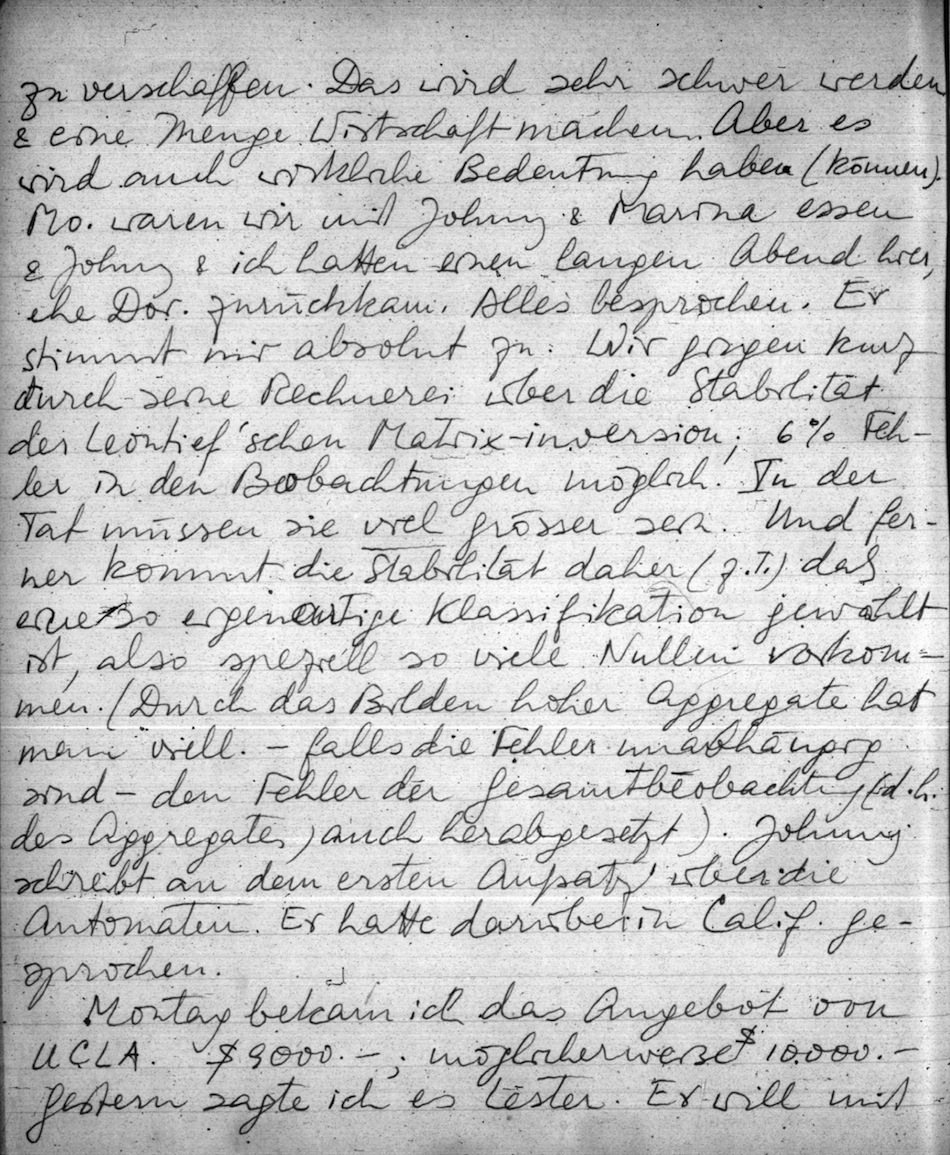 zu verschaffen. Das wird sehr schwer werden
& eine Menge Wirtschaft machen. Aber es
wird auch wirkliche Bedeutung haben (können).
Mo. waren wir mit Johnny & Marina essen
& Johny & ich hatten einen langen Abend hier,
ehe Dor. zurückkam. Alles besprochen. Er
stimmt mir absolut zu. Wir gingen kurz
durch seine Rechnerei über die Stabilität
der Leontief'schen Matrix-inversion; 6% Feh-
ler in den Beobachtungen möglich. In der
Tat müssen sie viel grösser sein. Und fer-
ner kommt die Stabilität daher (z.T.) daß
eine so eigenartige Klassifikation gewählt
ist, also speziell so viele Nullen vorkom-
men. (Durch das Bilden hoher Aggregate hat
man viell. – falls die Fehler unabhängig
sind – den Fehler der Gesamtbeobachtung (d.h.
des Aggregates) auch herabgesetzt). Johnny
schreibt an dem ersten Aufsatz über die
Automaten. Er hatte darüber in Calif. ge-
sprochen.
Montag bekam ich das Angebot von
UCLA. $9000.–; möglicherweise $10.000.–
Gestern sagte ich es Lester. Er will mit